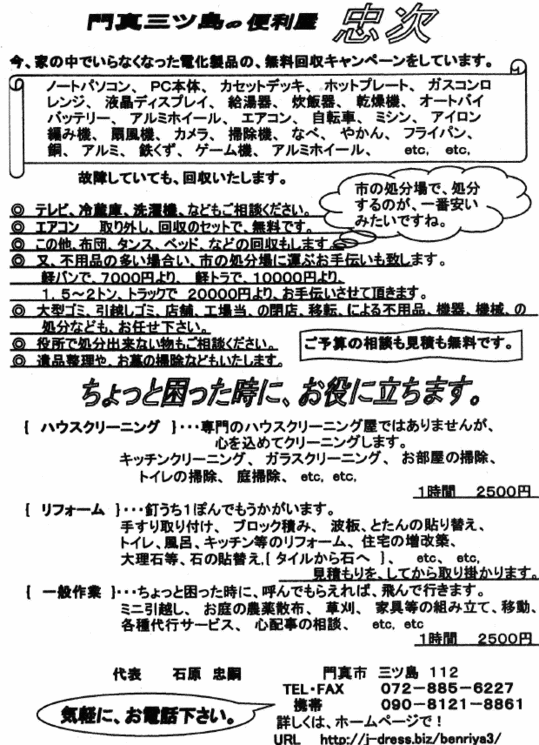 門真三ツ島の便利屋 忠次
今、家の中でいらなくなった電化製品の、無料回収キャンペーンをしています。
ノートパソコン、 PC本体、 カセットデッキ、 ホットプレート、 ガスコンロ
レンジ、 液晶ディスプレイ、 給湯器、 炊飯器、 乾燥機、 オートバイ
バッテリー、 アルミホイール、 エアコン、 自転車、 ミシン、 アイロン
編み機、 扇風機、 カメラ、 掃除機、 なべ、 やかん、 フライパン、
銅、 アルミ、 鉄くず、 ゲーム機、 アルミホイール、 etc, etc,
故障していても、回収いたします。
市の処分場で、処分
するのが、一番安い
みたいですね。
◎ テレビ、冷蔵庫、洗濯機、などもご相談ください。
◎ エアコン 取り外し、回収のセットで、無料です。
◎ この他、布団、タンス、ベッド、などの回収もします。
◎ 又、不用品の多い場合い、市の処分場に運ぶお手伝いも致します。
軽バンで、7000円より、 軽トラで、10000円より、
1,5~2トン、トラックで 20000円より、お手伝いさせて頂きます。
◎ 大型ゴミ、引越しゴミ、店舗、工場当、の閉店、移転、による不用品、機器、機械、の
処分なども、お任せ下さい。
◎ 役所で処分出来ない物もご相談ください。
◎ 遺品整理や、お墓の掃除などもいたします。
ご予算の相談も見積も無料です。
ちょっと困った時に、お役に立ちます。
{ ハウスクリーニング }・・・専門のハウスクリーニング屋ではありませんが、
心を込めてクリーニングします。
キッチンクリーニング、 ガラスクリーニング、 お部屋の掃除、
トイレの掃除、 庭掃除、 etc, etc,
1時間 2500円
{ リフォーム }・・・釘うち1ぽんでもうかがいます。
手すり取り付け、 ブロック積み、 波板、とたんの貼り替え、
トイレ、風呂、キッチン等のリフォーム、 住宅の増改築、
大理石等、石の貼替え,{ タイルから石へ }、 etc, etc,
見積もりを、してから取り掛かります。
{ 一般作業 }・・・ちょっと困った時に、呼んでもらえれば、飛んで行きます。
ミニ引越し、 お庭の農薬散布、 草刈、 家具等の組み立て、移動、
各種代行サービス、 心配事の相談、 etc, etc
1時間 2500円
代表 石原 忠嗣
門真市 三ツ島 112
TEL・FAX 072-885-6227
携帯 090-8121-8861
気軽に、お電話下さい。
詳しくは、ホームページで!
URL http://j-dress.biz/benriya3/